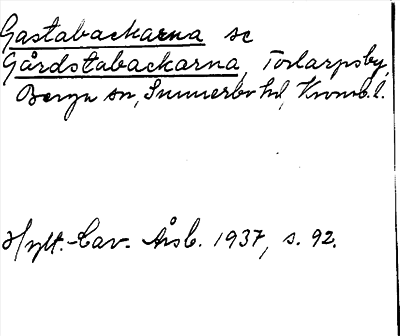 Gastabackarna se
Gårdstabackarna, Torlarpsby,
Berga sn, Sunnerbo hd, Kronob. l.
Hylt.-Cav. Årsb. 1937, s. 92.